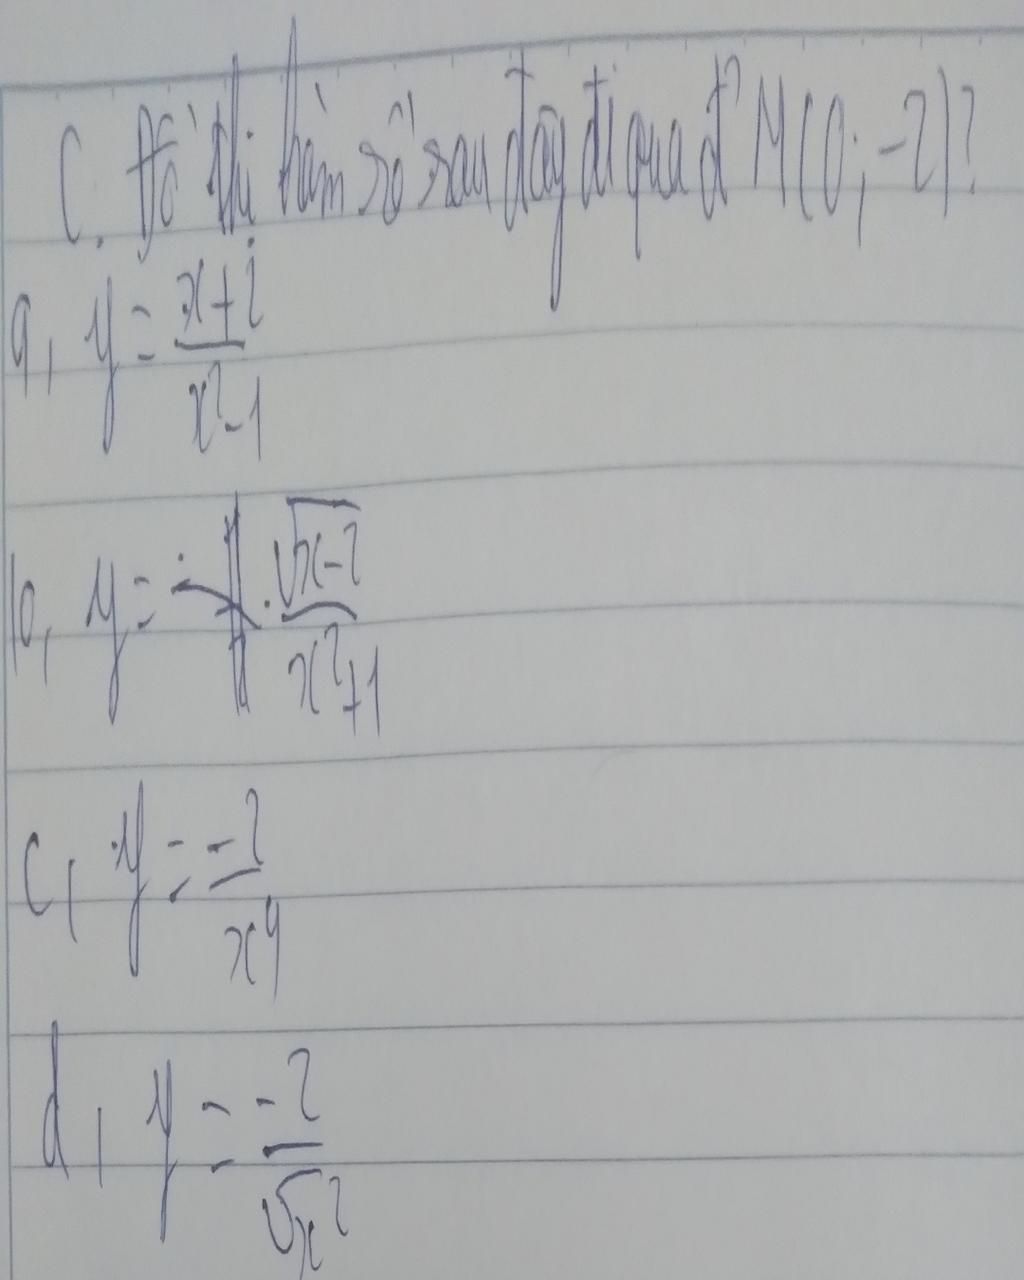 C. Đồ thị hàm số sau đây đi qua đ' M(0; -2)?
a, y = (x+2)/(x²-1)
b, y = √(x-2)/(x²+1)
c, y = -2/x⁴
d, y = -2/√x²